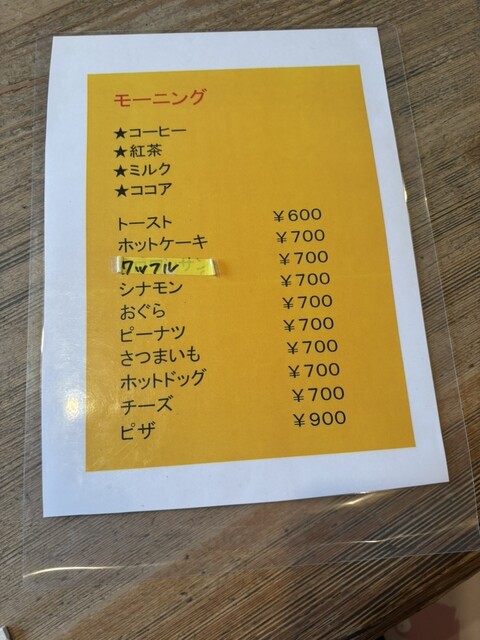 モーニング
★コーヒー
★紅茶
★ミルク
★ココア
トースト ￥600
ホットケーキ ￥700
ワッフル ￥700
シナモン ￥700
おぐら ￥700
ピーナツ ￥700
さつまいも ￥700
ホットドッグ ￥700
チーズ ￥700
ピザ ￥900